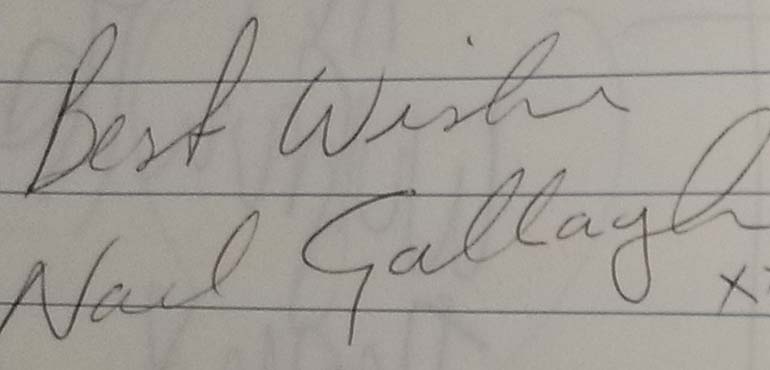 Best Wishe
Noel Gallagh
x